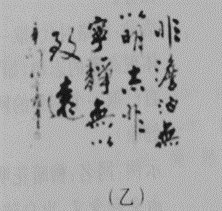 非澹泊無
以明志非
寧靜無以
致遠
（乙）